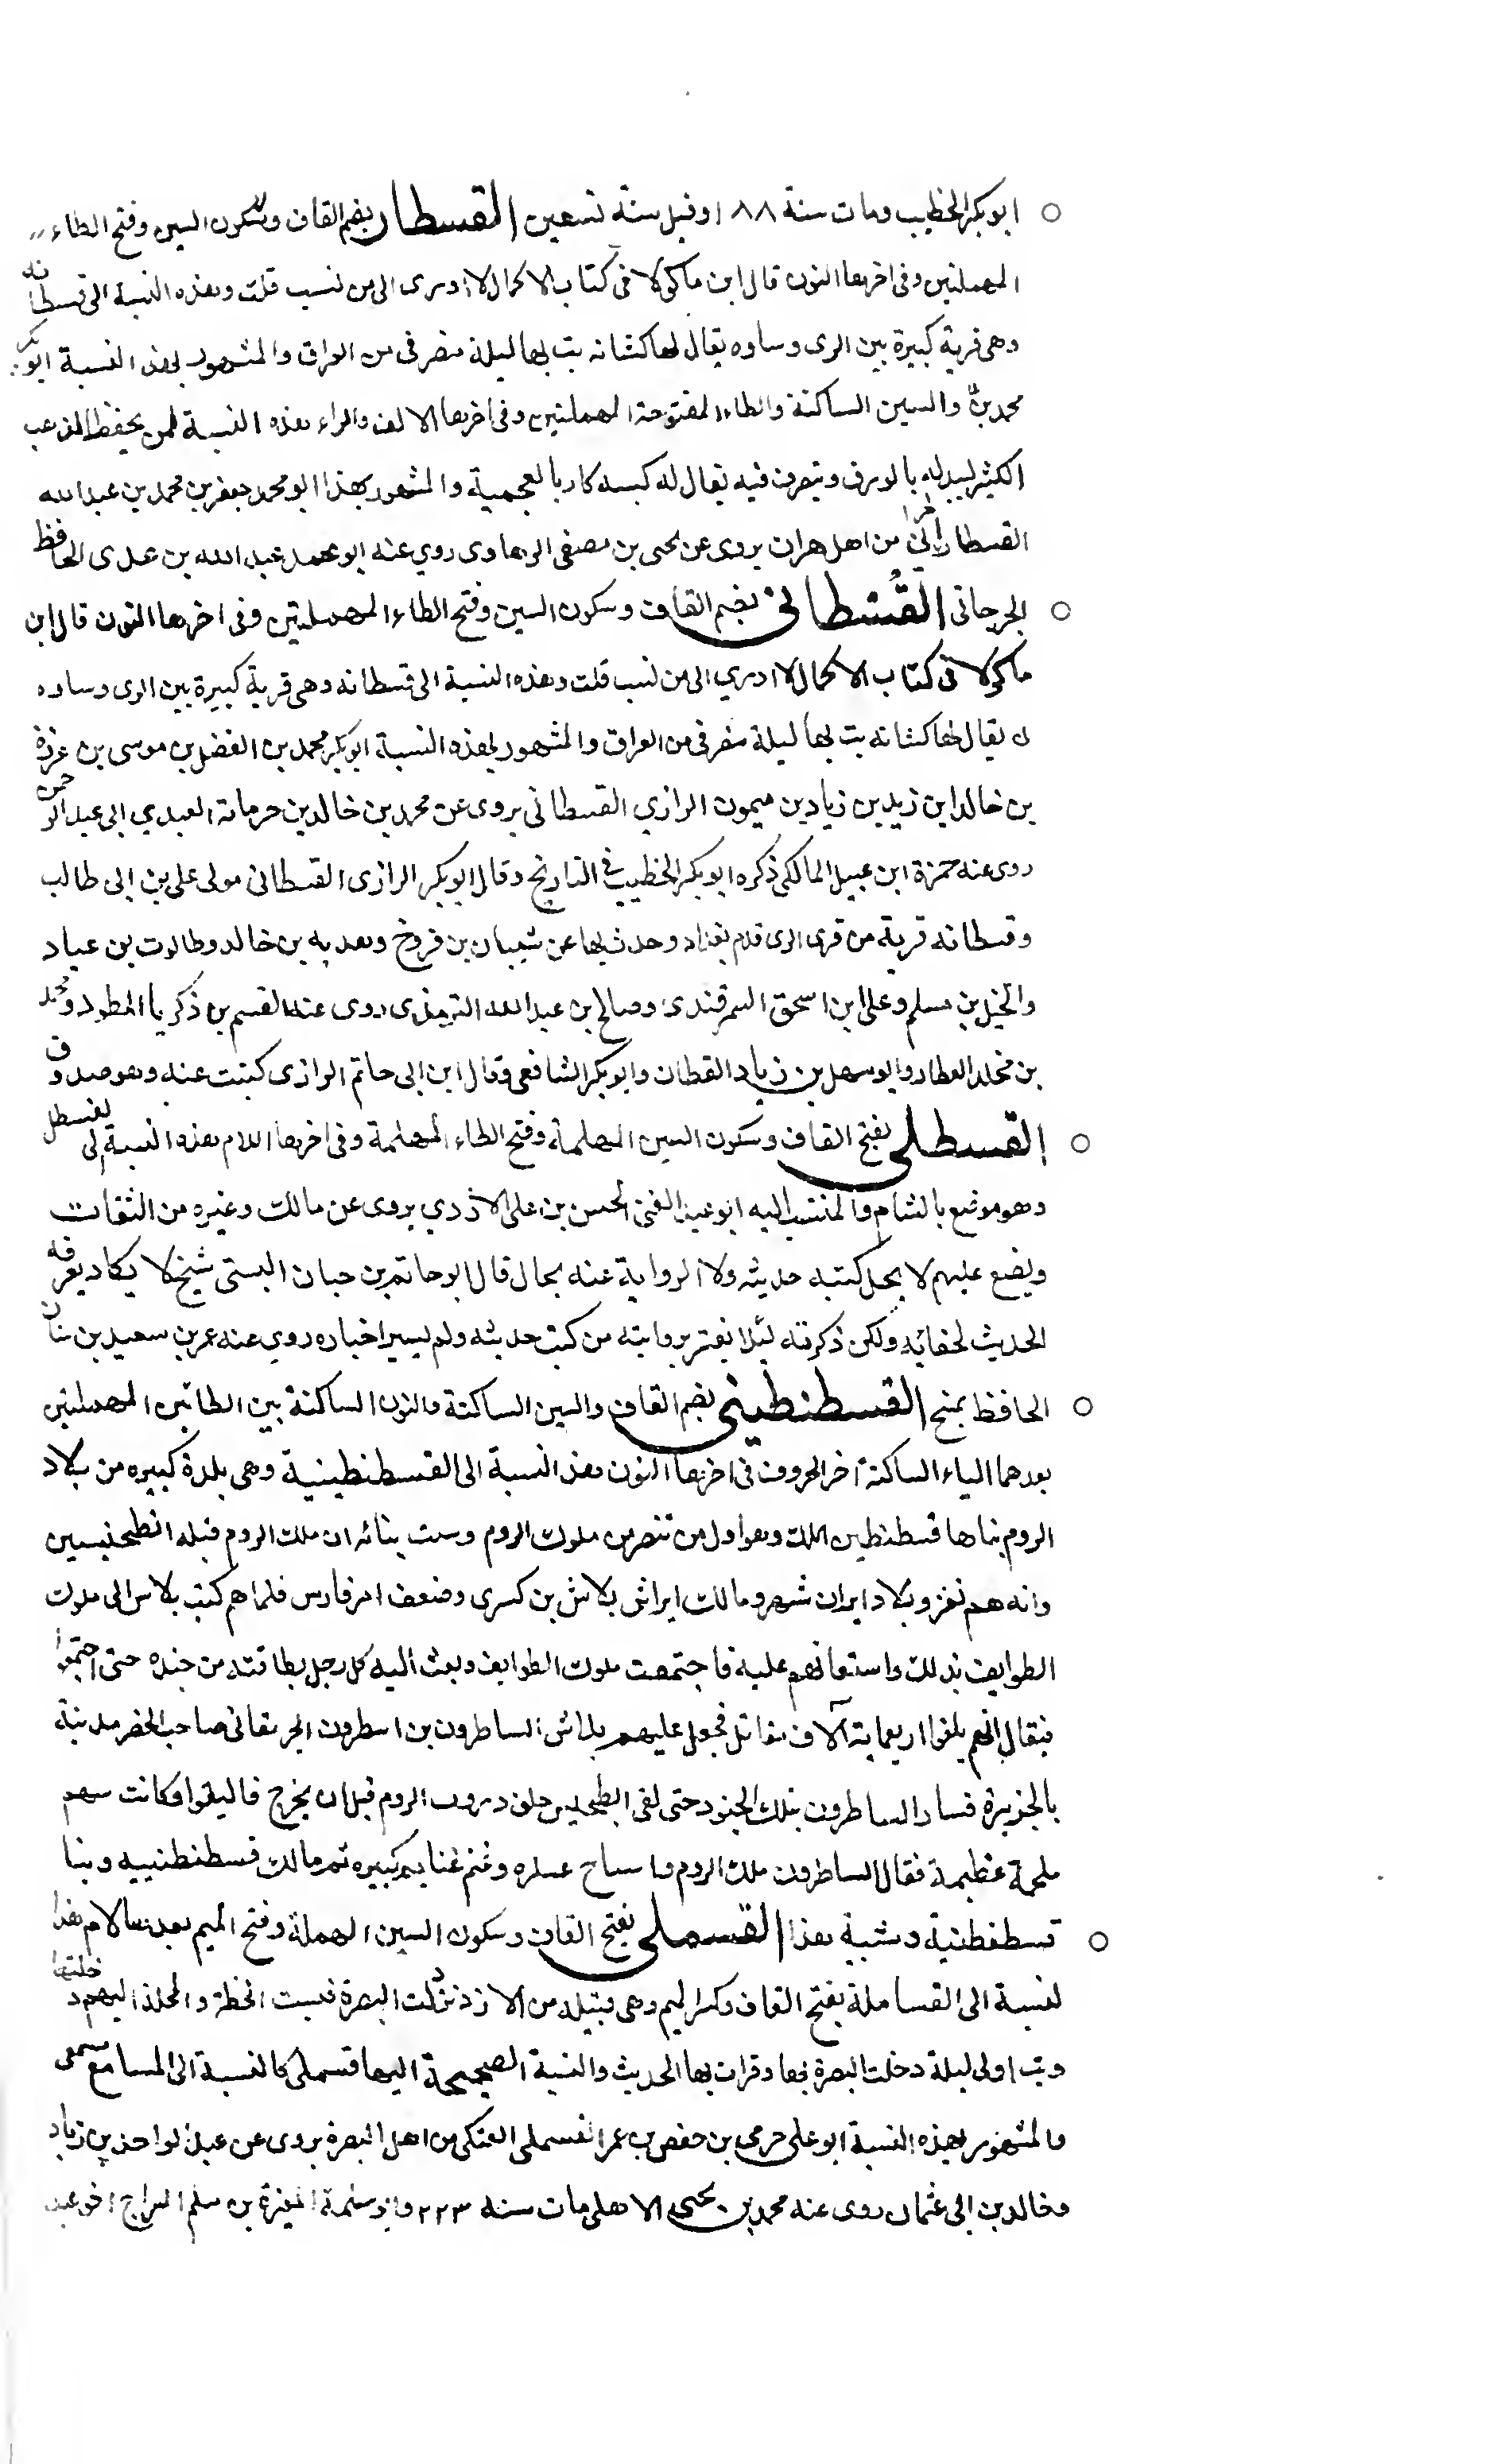 ابو بكر الخطيب ومات سنة ٨٨ ا وقيل سنة تسعين القسطار بضم القاف وسكون السين وفتح الطاء
المهملتين وفى اخرها النون قال ابن ماكولا فى كتاب الاكمال لا ادرى الى من نسب قلت وهذه النسبة الى قسطانه
وهى قرية كبيرة بين الرى وساوه يقال لها كشانه بت بها ليلة منصرفى من العراق والمشهور بهذه النسبة ابو بكر
محمد بن والسين الساكنة والطاء المفتوحة المهملتين وفى اخرها الالف والراء هذه النسبة لمن يحفظ الذهب
الكثير ليبدله بالورق ويتصرف فيه يقال له كيسه كار بالعجمية والمشهور بهذا ابو محمد جعفر بن محمد بن عبد الله
القسطار الحرانى من اهل حران يروى عن يحيى بن مصفى الرهاوى روي عنه ابو محمد عبد الله بن عدى الحافظ
الجرجانى القُسْطانى بضم القاف وسكون السين وفتح الطاء المهملتين وفى اخرها النون قال ابن
ماكولا فى كتاب الاكمال لا ادري الى من نسب قلت وهذه النسبة الى قسطانه وهى قرية كبيرة بين الرى وساوه
يقال لها كشانه بت بها ليلة منصرفى من العراق والمشهور بهذه النسبة ابو بكر محمد بن الفضل بن موسى بن عزرة
بن خالد ابن زيد بن زياد بن ميمون الرازي القسطانى يروى عن محمد بن خالد بن حرملة العبدي ابى عبد الرحمن
روى عنه حمزة ابن عبيد المالكى ذكره ابو بكر الخطيب فى التاريخ وقال ابو بكر الرازى القسطانى مولى على بن ابى طالب
وقسطانه قرية من قرى الرى قدم بغداد وحدث بها عن شيبان بن فروخ وهدبه بن خالد وطالوت بن عباد
والخليل بن مسلم وعلى ابن اسحق السمرقندى وصالح بن عبد الله الترمذى روى عنه القسم بن ذكريا المطرز ومحمد
بن مخلد العطار وابو سهل بن زياد القطان وابو بكر الشافعى وقال ابن ابى حاتم الرازى كتبت عنه وهو صدوق
القسطلى بفتح القاف وسكون السين المهملة وفتح الطاء المهملة وفى اخرها اللام هذه النسبة الى القسطل
وهو موضع بالشام والمنتسب اليه ابو عبد الغنى الحسن بن على الازدي يروى عن مالك وغيره من الثقات
ويضع عليهم لا يحل كتبه حديثه ولا الرواية عنه بحال قال ابو حاتم بن حبان البستى شيخ لا يكاد يعرفه
الحديث لخفائه ولكن ذكرته لئلا يغتر بروايته من كتب حديثه ولم يسبر اخباره روى عنه عمر بن سعيد بن سنان
الحافظ بمنبج القسطنطينى بضم القاف والسين الساكنة والنون الساكنة بين الطائين المهملتين
بعدهما الياء الساكنة اخر الحروف فى اخرها النون هذه النسبة الى القسطنطينية وهى بلدة كبيره من بلاد
الروم بناها قسطنطين الملك وهو اول من تنصر من ملوك الروم وسبب بنائه ان ملك الروم قبله
وانه هم بغزو بلاد ايران شهر وملك ايران بلاش بن كسرى وضعف امر فارس فلما هم كتب بلاش الى ملوك
الطوايف بذلك واستعانهم عليه فاجتمعت ملوك الطوايف وبعث اليه كل رجل بطاقته من جنده حتى اجتمعوا
فيقال انهم بلغوا اربعماية آلاف مقاتل فجعل عليهم بلاش الساطرون بن اسطرون الجرمقانى صاحب الحضر مدينة
بالجزيرة فسار الساطرون بتلك الجنود حتى لقى خلف دروب الروم قبل ان يخرج فالتقوا وكانت بينهم
ملحمة عظيمة فقال الساطرون ملك الروم عسكره وغنم غنايم كبيره ثم ملك قسطنطنييه وبنا
قسطنطنية وشبية هذا القسملى بفتح القاف وسكون السين المهملة وفتح الميم بعدها لام هذا
لنسبة الى القساملة بفتح القاف وكسر الميم وهى قبيله من الازد نزلت البصرة فنسبت الخطة والمحلة اليهم دخلتها
وبت اولى ليلة دخلت البصرة بها وقرات بها الحديث والنسبة الصحيحة اليها قسملى كالنسبة الى المسامع مسمعى
والمشهور بهذه النسبة ابو على حرمى بن حفص بن عمر القسملى العتكى من اهل البصرة يروى عن عبد الواحد بن زياد
وخالد بن ابى عثمان روى عنه محمد بن يحيى الاهلى مات سنة ٢٢٣ وابو سلمة المغيرة بن مسلم السراج اخو عبد